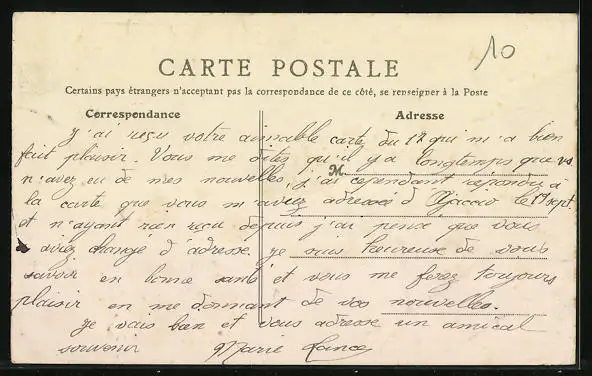 10
CARTE POSTALE
Certains pays étrangers n'acceptant pas la correspondance de ce côté, se renseigner à la Poste
Correspondance
Adresse
M.
J'ai reçu votre aimable carte du 12 qui m'a bien
fait plaisir. Vous me dites qu'il y a longtemps que vs
n'avez eu de mes nouvelles, j'ai cependant répondu à
la carte que vous m'aviez adressée d'Ajaccio le 1er sept
et n'ayant rien reçu depuis j'ai pensé que vous
aviez changé d'adresse. je suis heureuse de vous
savoir en bonne santé et vous me ferez toujours
plaisir en me donnant de vos nouvelles.
je vais bien et vous adresse un amical
souvenir Marie